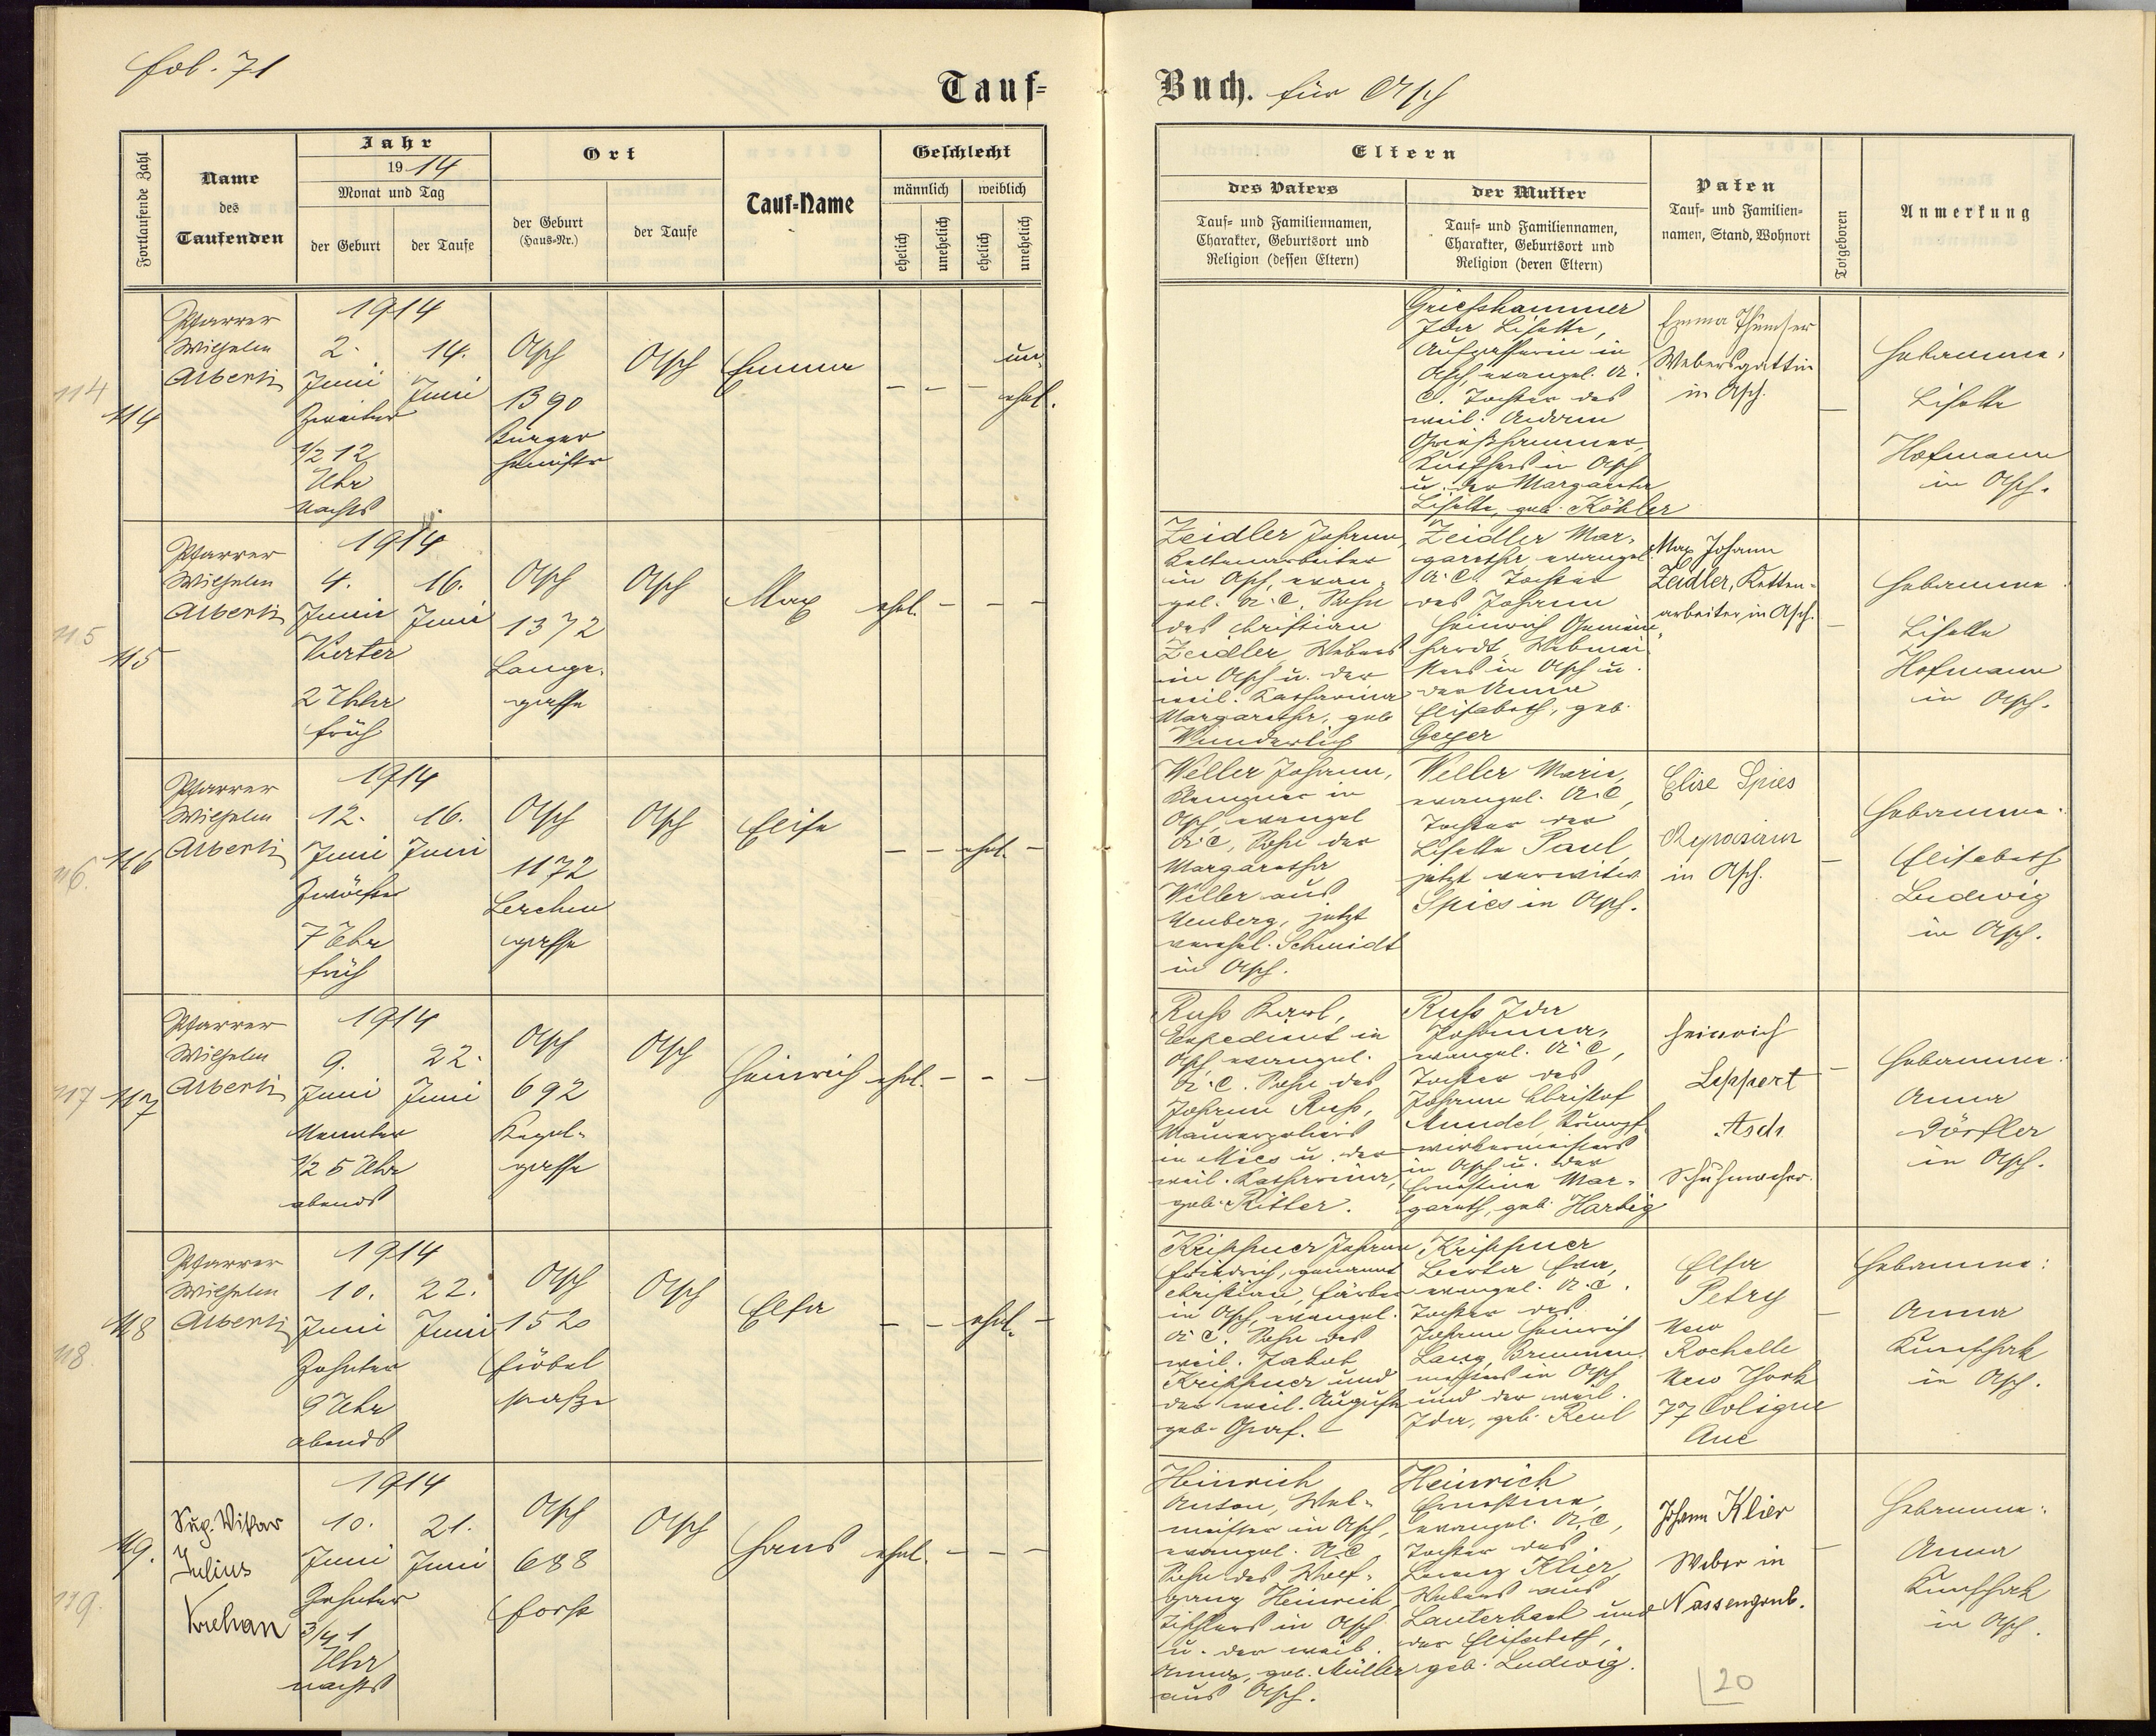 fol. 71
Tauf=
Buch. für Asch
Fortlaufende Zahl
Name
des
Taufenden
Jahr
1914
Monat und Tag
der Geburt
der Taufe
Ort
der Geburt
(Haus-Nr.)
der Taufe
Tauf=Name
Geschlecht
männlich
weiblich
ehelich
unehelich
ehelich
unehelich
Eltern
des Vaters
Tauf= und Familiennamen,
Charakter, Geburtsort und
Religion (dessen Eltern)
der Mutter
Tauf= und Familiennamen,
Charakter, Geburtsort und
Religion (deren Eltern)
Paten
Tauf= und Familien=
namen, Stand, Wohnort
Totgeboren
Anmerkung
114
114
Pfarrer
Wilhelm
Alberti
1914
2.
Juni
Zweiter
1/2 12
Uhr
nachts
14.
Juni
Asch
1390
Bürger
heimstr
Asch
Emma
– – –
un
ehel.
Griesshammer
Ida Lisette,
in
Asch, evangel. A.
C. Tochter des
weil. Andreas
Griesshammer,
in Asch
u. der Margareta
Lisette, geb. Köhler
Emma Thümser
Webersgattin
in Asch.
–
Hebamme:
Lisette
Hofmann
in Asch.
115
115
Pfarrer
Wilhelm
Alberti
1914
4.
Juni
Vierter
2 Uhr
früh
16.
Juni
Asch
1372
Lange
gasse
Asch
Max
ehel. – – –
Zeidler Johann,
Kettenarbeiter
in Asch, evan=
gel. A. C. Sohn
des Christian
Zeidler Webers
in Asch u. der
weil. Katharina
Margaretha, geb.
Wunderlich
Zeidler Mar=
garetha, evangel.
A. C. Tochter
des Johann
Heinrich Gemein=
hardt, Webmei
sters in Asch u.
der Anna
Elisabeth, geb.
Geyer
Max Johann
Zeidler, Ketten=
arbeiter, in Asch.
–
Hebamme:
Lisette
Hofmann
in Asch.
116.
116
Pfarrer
Wilhelm
Alberti
1914
12.
Juni
Zwölfter
7 Uhr
früh
16.
Juni
Asch
1172
Lerchen
gasse
Asch
Elise
– – ehel. –
Weller Johann,
in
Asch, evangel
A. C, Sohn der
Margaretha
Weller aus
Neuberg, jetzt
verehel. Schmidt
in Asch.
Weller Marie,
evangel. A. C,
Tochter der
Lisette Paul,
jetzt verwitw
Spies in Asch.
Elise Spies
in Asch.
–
Hebamme:
Elisabeth
Ludwig
in Asch.
117
117
Pfarrer
Wilhelm
Alberti
1914
9.
Juni
Neunter
1/2 5 Uhr
abends
22.
Juni
Asch
692
Kegel=
gasse
Asch
Heinrich
ehel. – – –
Russ Karl,
Expedient in
Asch, evangel.
A. C. Sohn des
Johann Russ,
Maurerpoliers
in Mies u. der
weil. Katharina,
geb. Ritter.
Russ Ida
Johanna,
evangel. A. C,
Tochter des
Johann Christof
Künzel, Strumpf
wirkermeisters
in Asch u. der
Ernestine Mar=
gareth, geb. Hartig
Heinrich
Leppert
Asch
Schuhmacher.
–
Hebamme:
Anna
Dörfler
in Asch.
118.
118
Pfarrer
Wilhelm
Alberti
1914
10.
Juni
Zehnter
9 Uhr
abends
22.
Juni
Asch
1520
Fröbel
straße
Asch
Elsa
– – ehel. –
Krippner Johann
Friedrich, genannt
Christian, Färber
in Asch, evangel.
A. C. Sohn des
weil. Jakob
Krippner und
der weil. Auguste
geb. Graf.
Krippner
Berta Eva,
evangel. A. C.
Tochter des
Johann Heinrich
Lang, Brunnen
meisters in Asch
und der weil.
Ida, geb. Reul
Elsa
Petry
New
Rochelle
New York
77 Coligne
Ave
–
Hebamme:
Anna
in Asch.
119.
119.
Sup. Vikar
Julius
Krehan
1914
10.
Juni
Zehnter
3/4 1
Uhr
nachts
21.
Juni
Asch
688
Forst
Asch
Hans
ehel. – – –
Heinrich
Anton, Web=
meister in Asch,
evangel. A. C.
Sohn des Wolf=
gang Heinrich,
Tischlers in Asch
u. der weil.
Anna, geb. Müller
aus Asch.
Heinrich
Ernestine,
evangel. A. C,
Tochter des
Georg Klier,
Webers aus
Lauterbach und
der Elisabeth,
geb. Ludwig.
Johann Klier
Weber in
Nassengrub.
–
Hebamme:
Anna
in Asch.
20